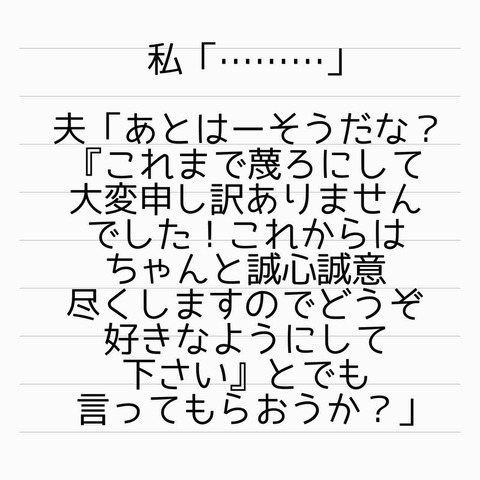 私「………」
夫「あとはーそうだな？
『これまで蔑ろにして
大変申し訳ありません
でした！これからは
ちゃんと誠心誠意
尽くしますのでどうぞ
好きなようにして
下さい』とでも
言ってもらおうか？」